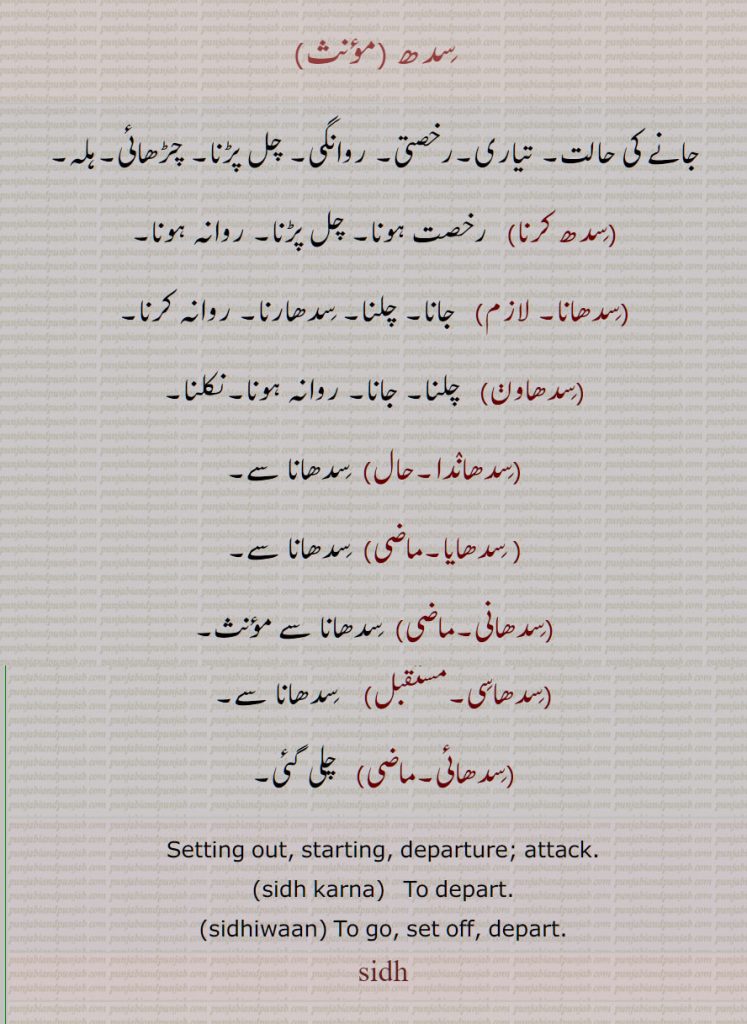 سِدھ (مؤنث)
جانے کی حالت۔ تیاری۔ رخصتی۔ روانگی۔ چل پڑنا۔ چڑھائی۔ ہلہ۔
(سِدھ کرنا) رخصت ہونا۔ چل پڑنا۔ روانہ ہونا۔
(سِدھانا۔ لازم) جانا۔ چلنا۔ سِدھارنا۔ روانہ کرنا۔
(سِدھاوݨ) چلنا۔ جانا۔ روانہ ہونا۔ نکلنا۔
(سِدھان٘دا۔حال) سِدھانا سے۔
( سِدھایا۔ماضی) سِدھانا سے۔
(سِدھانی۔ماضی) سِدھانا سے مؤنث۔
(سِدھاسِی۔مستقبل) سِدھانا سے۔
(سِدھائی۔ماضی) چلی گئی۔
Setting out, starting, departure; attack.
(sidh karna) To depart.
(sidhiwaan) To go, set off, depart.
sidh